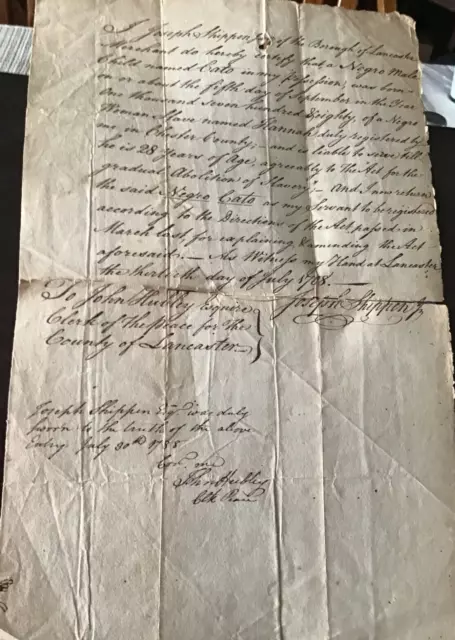 I Joseph Shippen Jr. of the Borough of Lancaster
Merchant do hereby certify that a Negro Male
Child named Cato in my possession, was born
on or about the fifth day of September in the Year
One thousand seven hundred & eighty, of a Negro
Woman Slave named Hannah, duly registered by
me in Chester County; and is liable to serve, till
he is 28 Years of Age, agreeably to the Act for the
gradual Abolition of Slavery. And I now return
the said Negro Cato as my Servant to be registered
according to the Directions of the Act passed in
March last for explaining & amending the Act
aforesaid. As Witness my Hand at Lancaster
the thirtieth day of July 1788.
Joseph Shippen Jr
To John Hubley Esquire
Clerk of the Peace for the
County of Lancaster
Joseph Shippen Esqr. was duly
sworn to the truth of the above
Entry July 30th 1788
me
John Hubley
Clk Peace